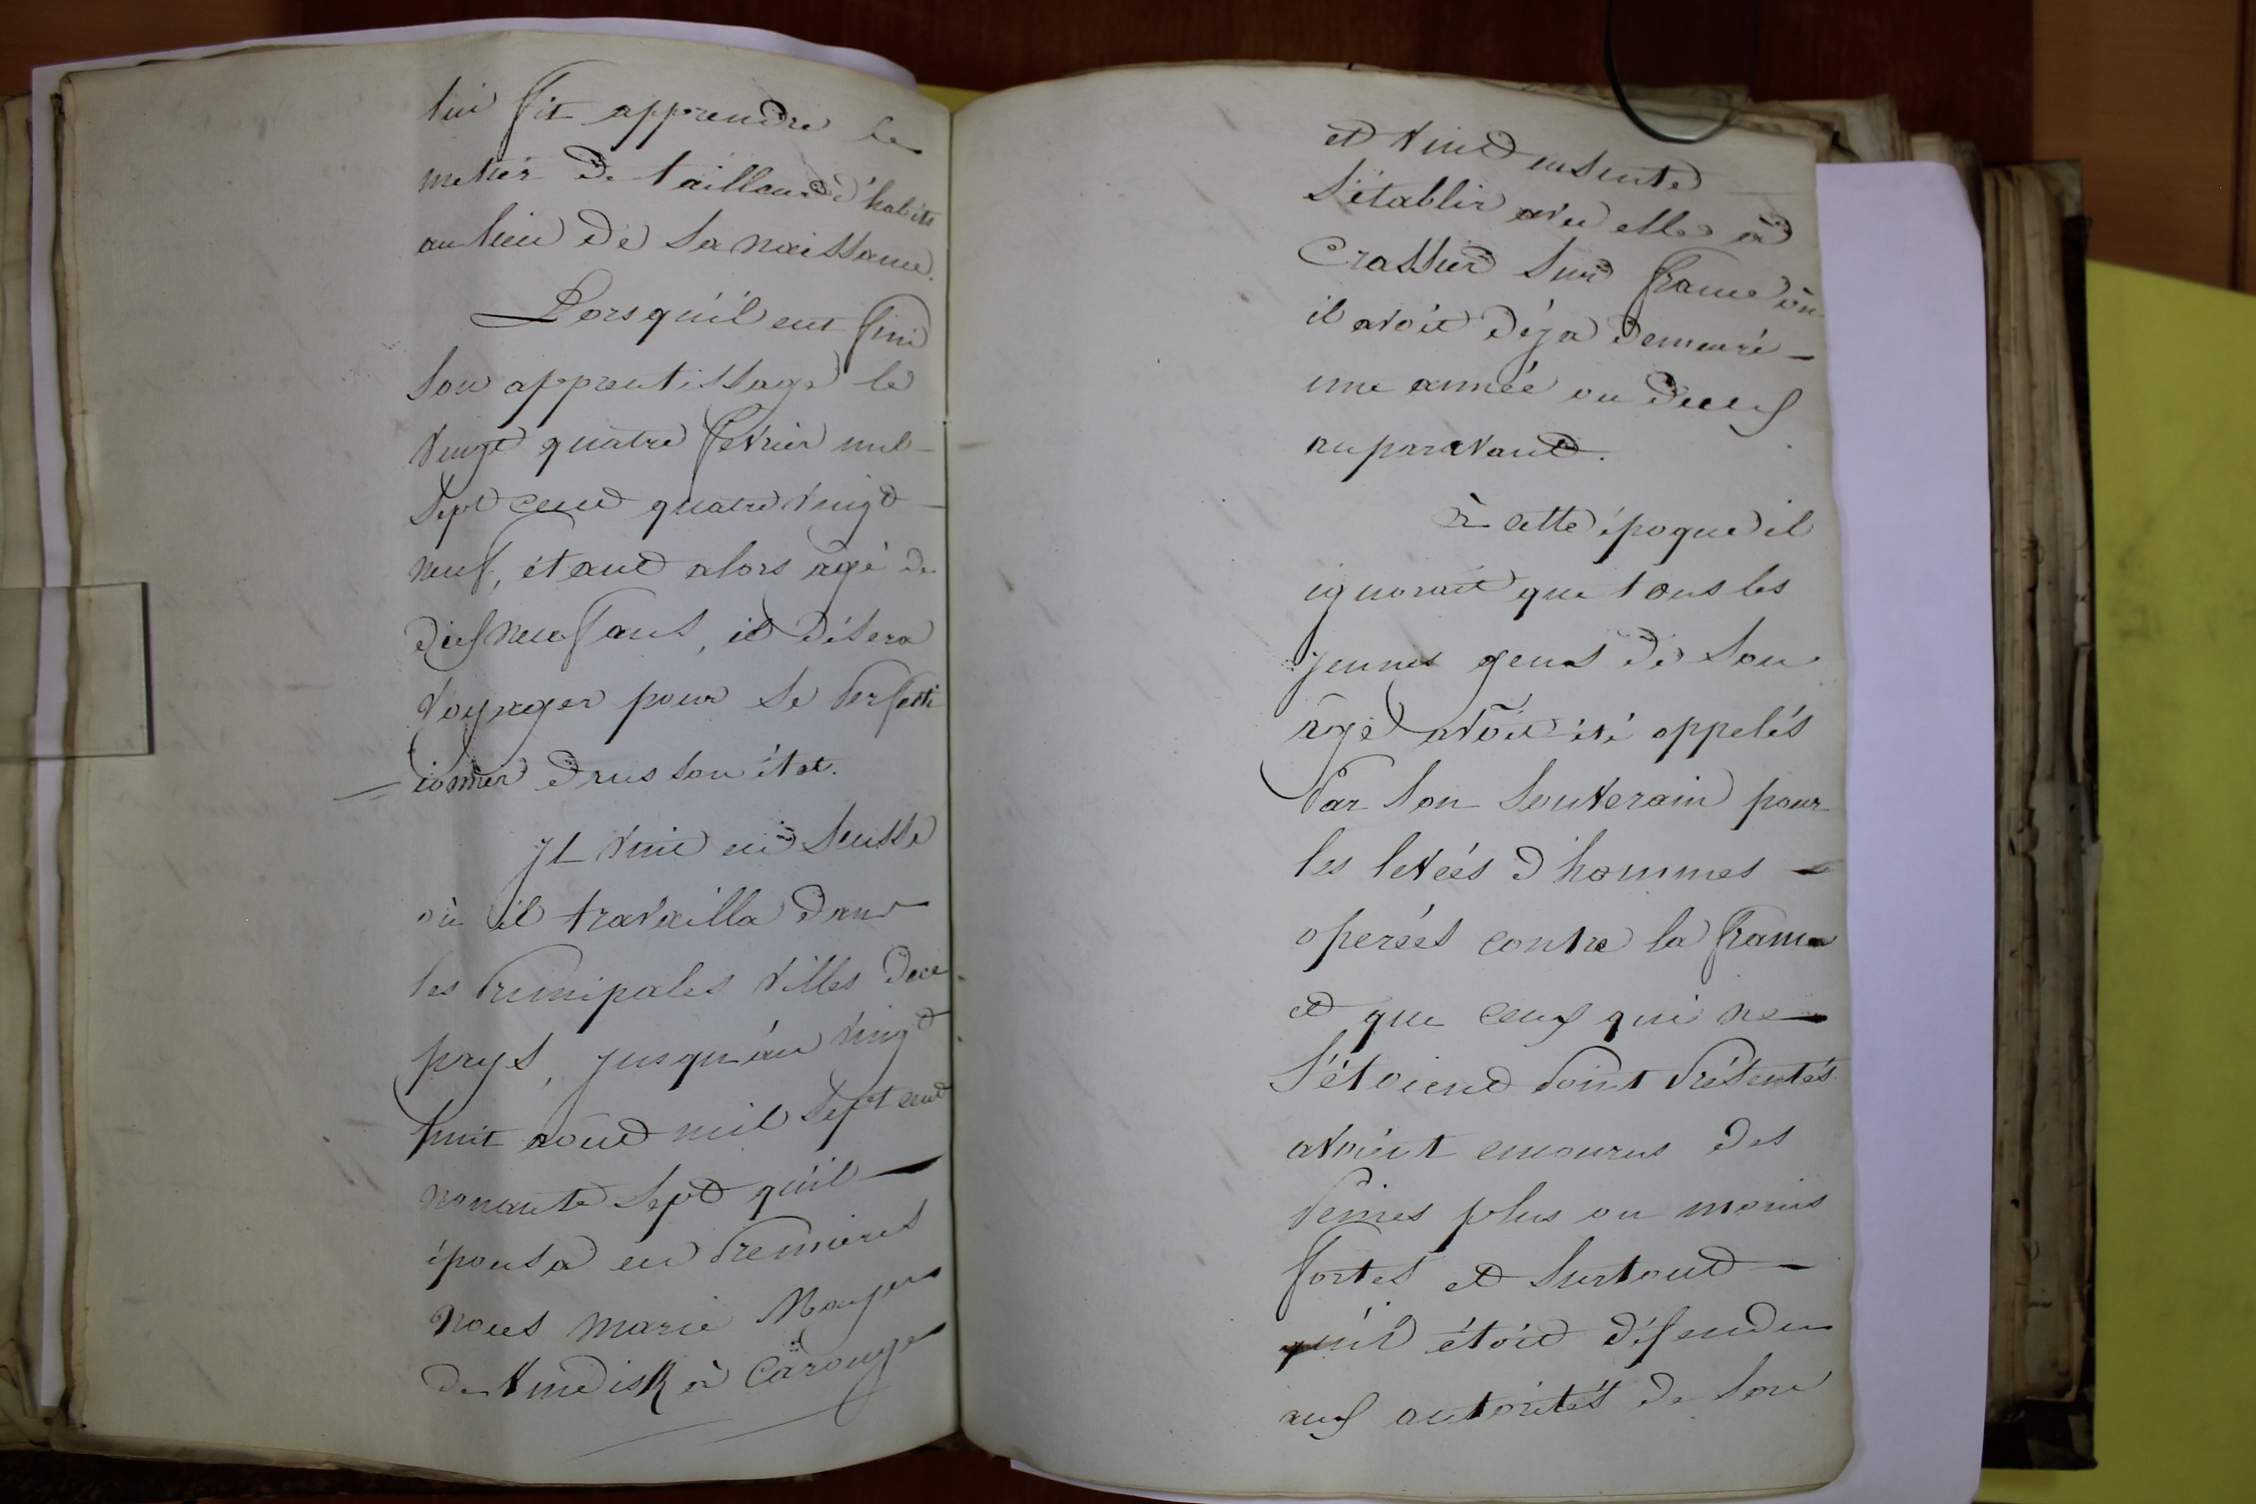 lui fit apprendre le
metier de tailleur d'habits
au lieu de sa naissance.
Lorsqu'il eut fini
son apprentissage le
vingt quatre fevrier mil
sept cent quatre vingt
neuf, étant alors agé de
dix neuf ans, il désera
voyager pour se perfecti
ionner dans son état.
Il vint en Suisse
où il travailla dans
les principales villes de ce
pays, jusqu'au vingt
huit aout mil sept cent
nonante sept qu'il
épousa en premieres
noces marie
de à Carouge
et vint ensuite
s'établir avec elle à
Crassier sur france où
il avoit déja demeuré
une année ou deux
auparavant.
à cette époque il
ignorait que tous les
jeunes gens de son
âge avoit été appelés
par son souverain pour
les levées d'hommes
operées contre la france
et que ceux qui ne
s'étoient point présentés
avoient encourus des
peines plus ou moins
fortes et surtout
qu'il étoit défendu
aux autorités de son